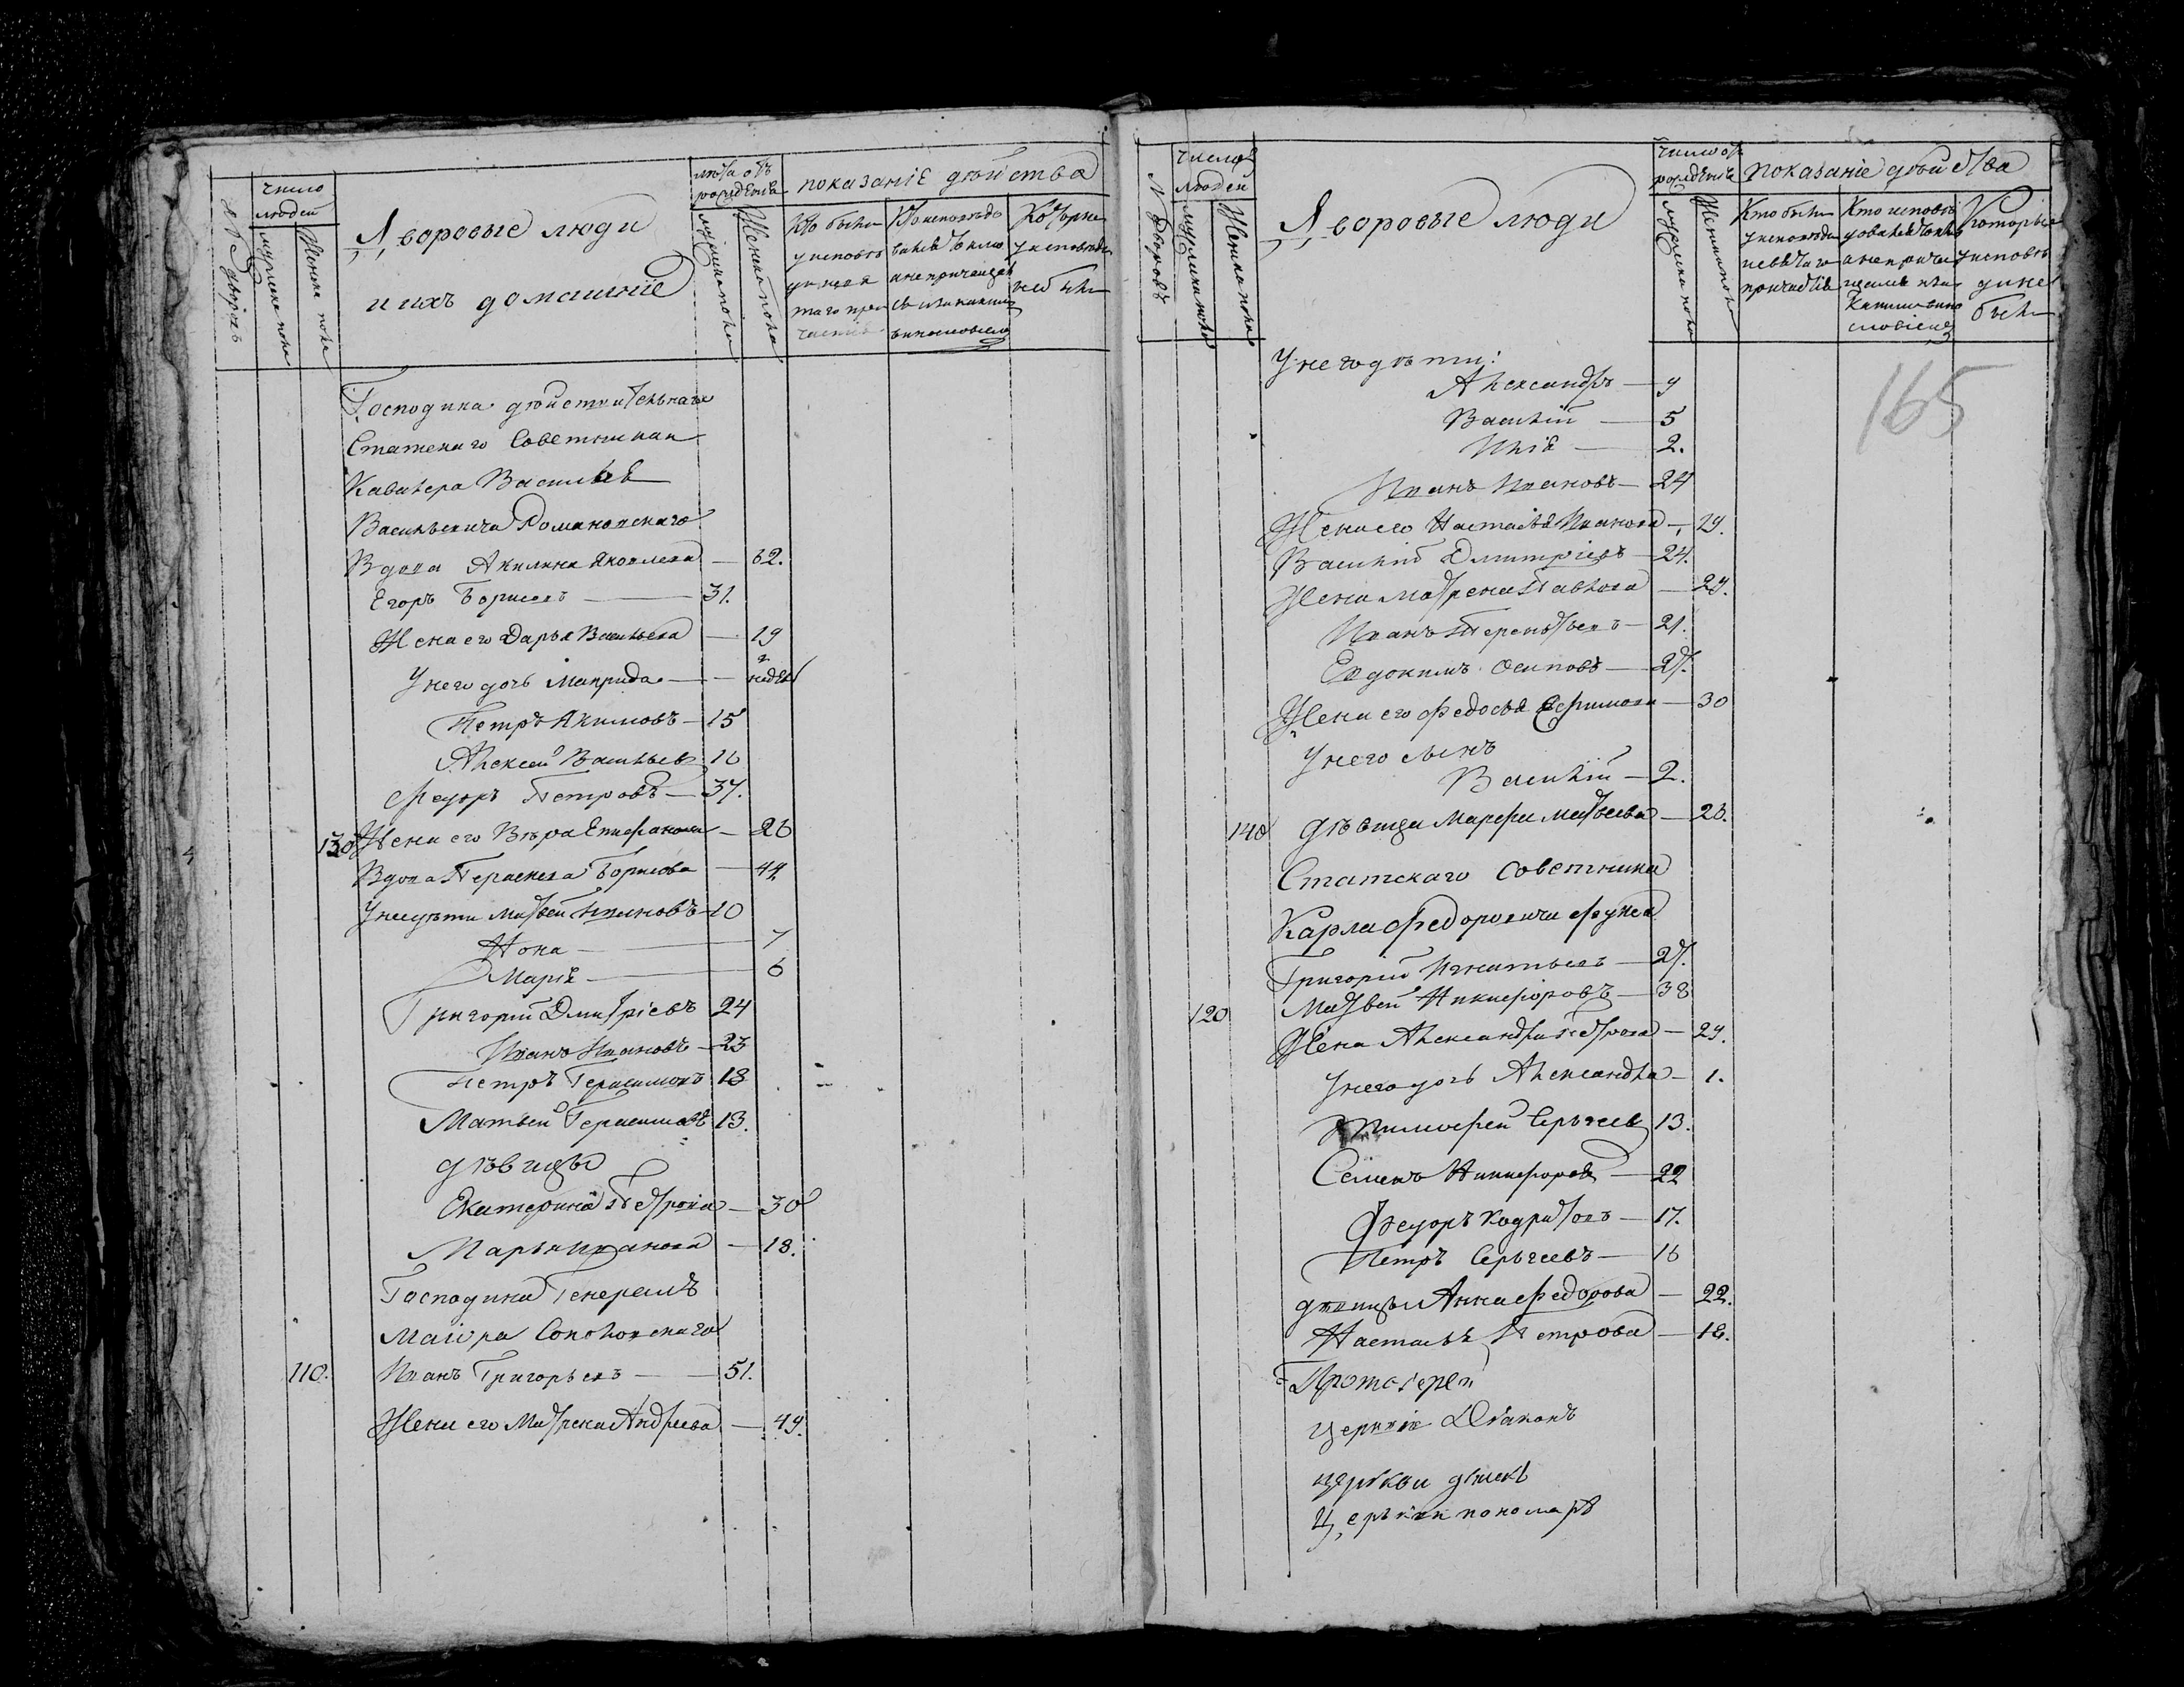 число
людей
№ дворовъ
мужеска пола
женска пола
Дворовые люди
и ихъ домашніе
лета отъ
рожденія
мужеска пола
Женска пола
показаніе действа
Кто были
у исповеди
Кто исповедо
а не причащал
Которые
у исповеди
не были
Господина действительнаго
Статскаго Советника и
Кавалера Василья
Васильевича Романовскаго
Вдова Акилина Яковлева — 62.
Егоръ Борисовъ — 31.
Жена его Дарья Васильева — 19
У него дочь Маврида — 2 недел
Петръ Акимовъ — 15
Алексей Васильев 16
Федоръ Петровъ — 37.
130 Жена его Вѣра Епифанова — 26
Вдова Параскева Борисова — 44
У нея дѣти Матвей Ивановъ — 10
Нона — 7
Марія — 6
Григорій Дмитріевъ 24
Иванъ Ивановъ — 23
Петръ Герасимовъ 18
Матвей Герасимовъ 13.
дѣвицы
Екатерина Петрова — 30
Марья Иванова — 18.
Господина Генералъ
Маіора Соколовскаго
110. Иванъ Григорьевъ — 51.
Жена его Матрена Андреева — 49.
число
людей
№ дворовъ
мужеска пола
Женска пола
Дворовые люди
число от
рожденія
мужеска пола
Женска пола
показаніе действа
Кто были
у исповеди
Кто исповѣ
Которые
у исповѣ
ди не
были
165
У него дѣти:
Александръ — 9
Василій — 5
Илія — 2.
Иванъ Ивановъ — 24
Жена его Настасья Иванова — 29.
Василій Дмитріевъ — 24.
Жена Матрена Павлова — 29.
Иванъ Терентьевъ — 21.
Евдокимъ Осиповъ — 27.
Жена его Федосья Ефимова — 30
У него сынъ
Василій — 2.
140 дѣвица Марфа Матвеева — 23.
Статскаго Советника
Карла Федоровича Фукса
Григорій Игнатьевъ — 27.
120 Матвей Никифоровъ — 38
Жена Александра Петрова — 29.
У него дочь Александра — 1.
Тимофей Сергеев 13.
Семенъ Никифоровъ — 22
Федоръ Кодратовъ — 17.
Петръ Сергеевъ — 16
девицы Анна Федорова — 22.
Настасья Петрова — 18.
Протоіерей
Церкви Діаконъ
церькви дьякъ
Церкви пономарь